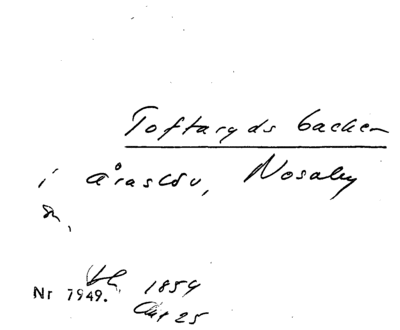 Toftaryds backen
i Åraslöv, Nosaby
Sn.
Nr 7949. 1859
Akt 25